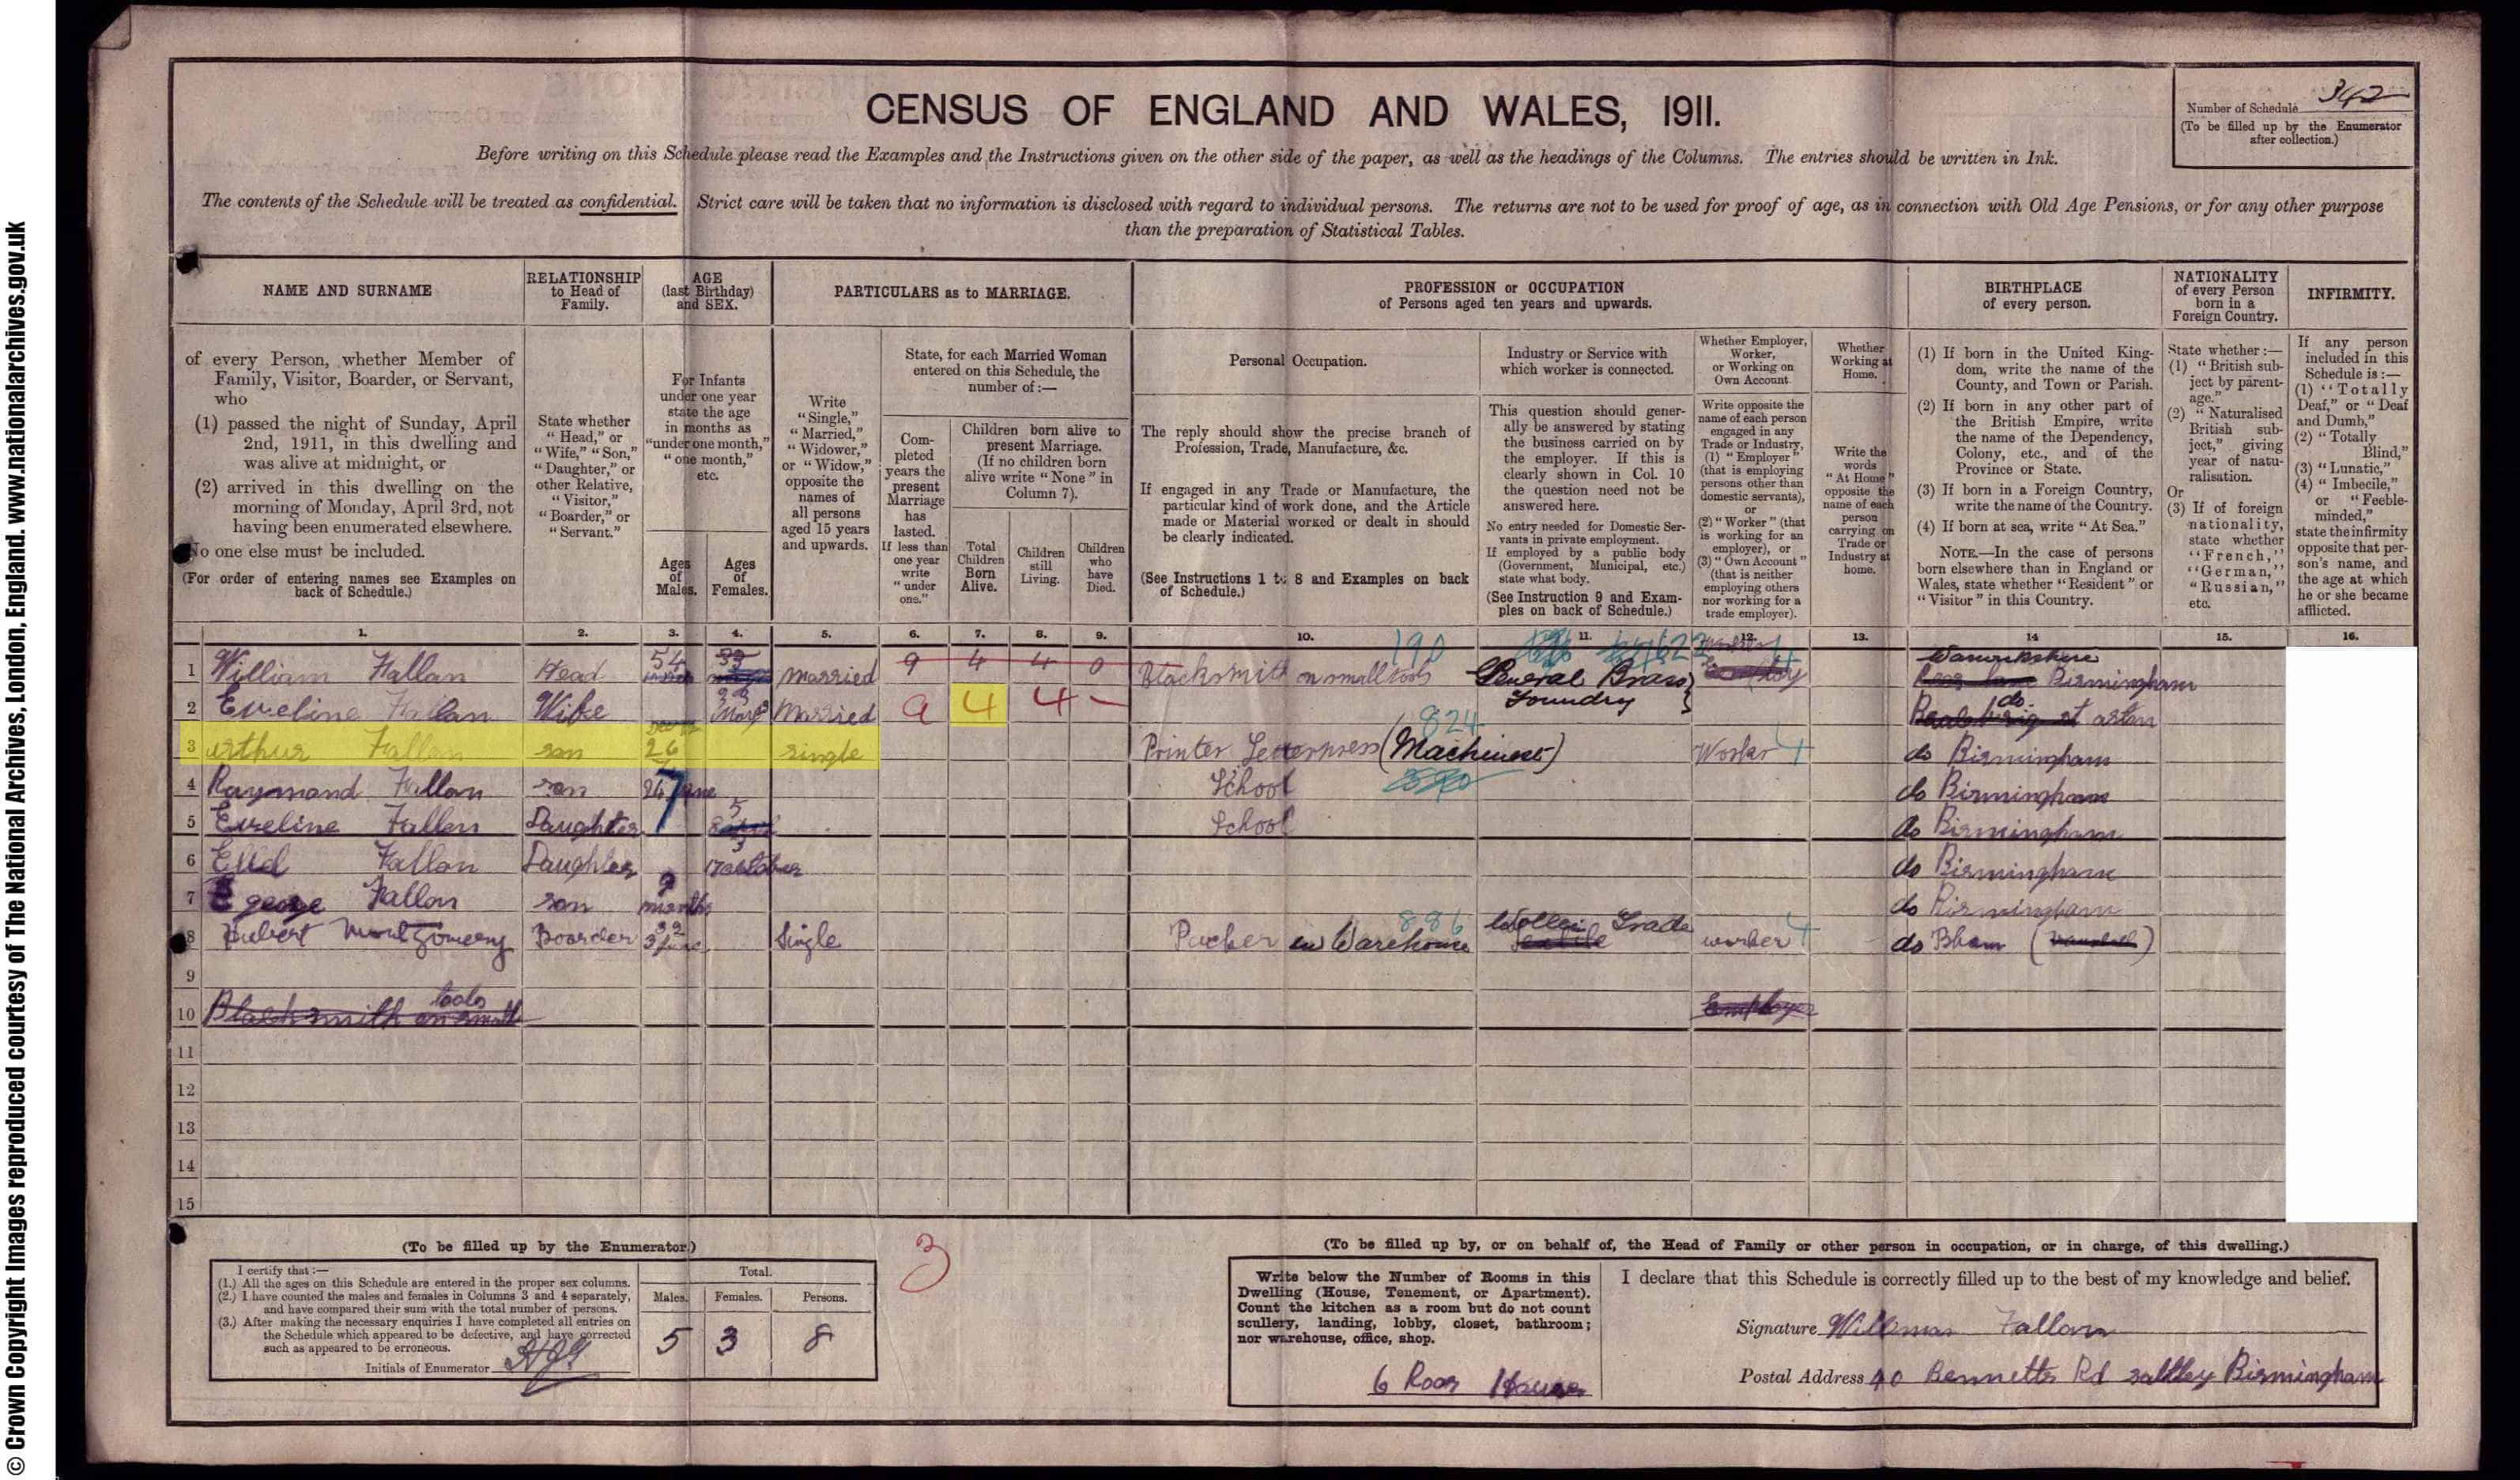 © Crown Copyright Images reproduced courtesy of The National Archives, London, England. www.nationalarchives.gov.uk
CENSUS OF ENGLAND AND WALES, 1911.
Number of Schedule 342
(To be filled up by the Enumerator
after collection.)
Before writing on this Schedule please read the Examples and the Instructions given on the other side of the paper, as well as the headings of the Columns. The entries should be written in Ink.
The contents of the Schedule will be treated as confidential. Strict care will be taken that no information is disclosed with regard to individual persons. The returns are not to be used for proof of age, as in connection with Old Age Pensions, or for any other purpose
than the preparation of Statistical Tables.
NAME AND SURNAME
of every Person, whether Member of
Family, Visitor, Boarder, or Servant,
who
(1) passed the night of Sunday, April
2nd, 1911, in this dwelling and
was alive at midnight, or
(2) arrived in this dwelling on the
morning of Monday, April 3rd, not
having been enumerated elsewhere.
No one else must be included.
(For order of entering names see Examples on
back of Schedule.)
RELATIONSHIP
to Head of
Family.
State whether
"Head," or
"Wife," "Son,"
"Daughter," or
other Relative,
"Visitor,"
"Boarder," or
"Servant."
AGE
(last Birthday)
and SEX.
For Infants
under one year
state the age
in months as
"under one month,"
"one month,"
etc.
Ages
of
Males.
Ages
of
Females.
PARTICULARS as to MARRIAGE.
Write
"Single,"
"Married,"
"Widower,"
or "Widow,"
opposite the
names of
all persons
aged 15 years
and upwards.
State, for each Married Woman
entered on this Schedule, the
number of:—
Com-
pleted
years the
present
Marriage
has
lasted.
If less than
one year
write
"under
one."
Children born alive to
present Marriage.
(If no children born
alive write "None" in
Column 7).
Total
Children
Born
Alive.
Children
still
Living.
Children
who
have
Died.
PROFESSION or OCCUPATION
of Persons aged ten years and upwards.
Personal Occupation.
The reply should show the precise branch of
Profession, Trade, Manufacture, &c.
If engaged in any Trade or Manufacture, the
particular kind of work done, and the Article
made or Material worked or dealt in should
be clearly indicated.
(See Instructions 1 to 8 and Examples on back
of Schedule.)
Industry or Service with
which worker is connected.
This question should gener-
ally be answered by stating
the business carried on by
the employer. If this is
clearly shown in Col. 10
the question need not be
answered here.
No entry needed for Domestic Ser-
vants in private employment.
If employed by a public body
(Government, Municipal, etc.)
state what body.
(See Instruction 9 and Exam-
ples on back of Schedule.)
Whether Employer,
Worker,
or Working on
Own Account
Write opposite the
name of each person
engaged in any
Trade or Industry,
(1) "Employer"
(that is employing
persons other than
domestic servants),
or
(2) "Worker" (that
is working for an
employer), or
(3) "Own Account"
(that is neither
employing others
nor working for a
trade employer).
Whether
Working at
Home.
Write the
words
"At Home"
opposite the
name of each
person
carrying on
Trade or
Industry at
home.
BIRTHPLACE
of every person.
(1) If born in the United King-
dom, write the name of the
County, and Town or Parish.
(2) If born in any other part of
the British Empire, write
the name of the Dependency,
Colony, etc., and of the
Province or State.
(3) If born in a Foreign Country,
write the name of the Country.
(4) If born at sea, write "At Sea."
NOTE.—In the case of persons
born elsewhere than in England or
Wales, state whether "Resident" or
"Visitor" in this Country.
NATIONALITY
of every Person
born in a
Foreign Country.
State whether :—
(1) "British sub-
ject by parent-
age."
(2) "Naturalised
British sub-
ject," giving
year of natu-
ralisation.
Or
(3) If of foreign
nationality,
state whether
"French,"
"German,"
"Russian,"
etc.
INFIRMITY.
If any person
included in this
Schedule is:—
(1) "Totally
Deaf," or "Deaf
and Dumb,"
(2) "Totally
Blind,"
(3) "Lunatic,"
(4) "Imbecile,"
or "Feeble-
minded,"
state the infirmity
opposite that per-
son's name, and
the age at which
he or she became
afflicted.
1. 2. 3. 4. 5. 6. 7. 8. 9. 10. 11. 12. 13. 14 15. 16.
1 William Fallon Head 54 33 married 9 4 4 0 Blacksmith on small tools 190 General Brass Warwickshire Birmingham
2 Eveline Fallon Wife Married 9 4 4 — Foundry do. aston
3 arthur Fallon son 26 single Printer Letterpress (Machinest) 824 Worker 4 do Birmingham
4 Raymond Fallon son 7 School do Birmingham
5 Eveline Fallon Daughter 5 School do Birmingham
6 Fallon Daughter 3 17 october do Birmingham
7 george Fallon son 9 months do Birmingham
8 Hubert Montgomery Boarder 32 Single Packer in Warehouse 886 Trade worker 4 do Bham
9
10 Blacksmith on small tools Employer
11
12
13
14
15
(To be filled up by the Enumerator.)
I certify that:—
(1.) All the ages on this Schedule are entered in the proper sex columns.
(2.) I have counted the males and females in Columns 3 and 4 separately,
and have compared their sum with the total number of persons.
(3.) After making the necessary enquiries I have completed all entries on
the Schedule which appeared to be defective, and have corrected
such as appeared to be erroneous.
Initials of Enumerator
Total.
Males. Females. Persons.
5 3 8
3
(To be filled up by, or on behalf of, the Head of Family or other person in occupation, or in charge, of this dwelling.)
Write below the Number of Rooms in this
Dwelling (House, Tenement, or Apartment).
Count the kitchen as a room but do not count
scullery, landing, lobby, closet, bathroom;
nor warehouse, office, shop.
6 Room House
I declare that this Schedule is correctly filled up to the best of my knowledge and belief.
Signature William Fallon
Postal Address 40 Bennetts Rd saltley Birmingham